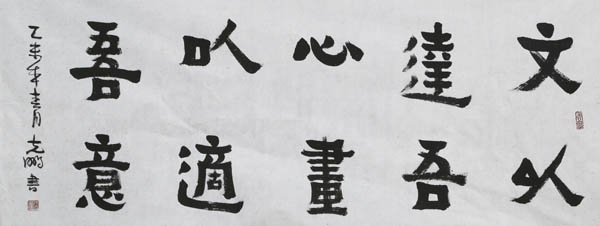 文以
達吾
心畫
以適
吾意
乙未年月鵬書